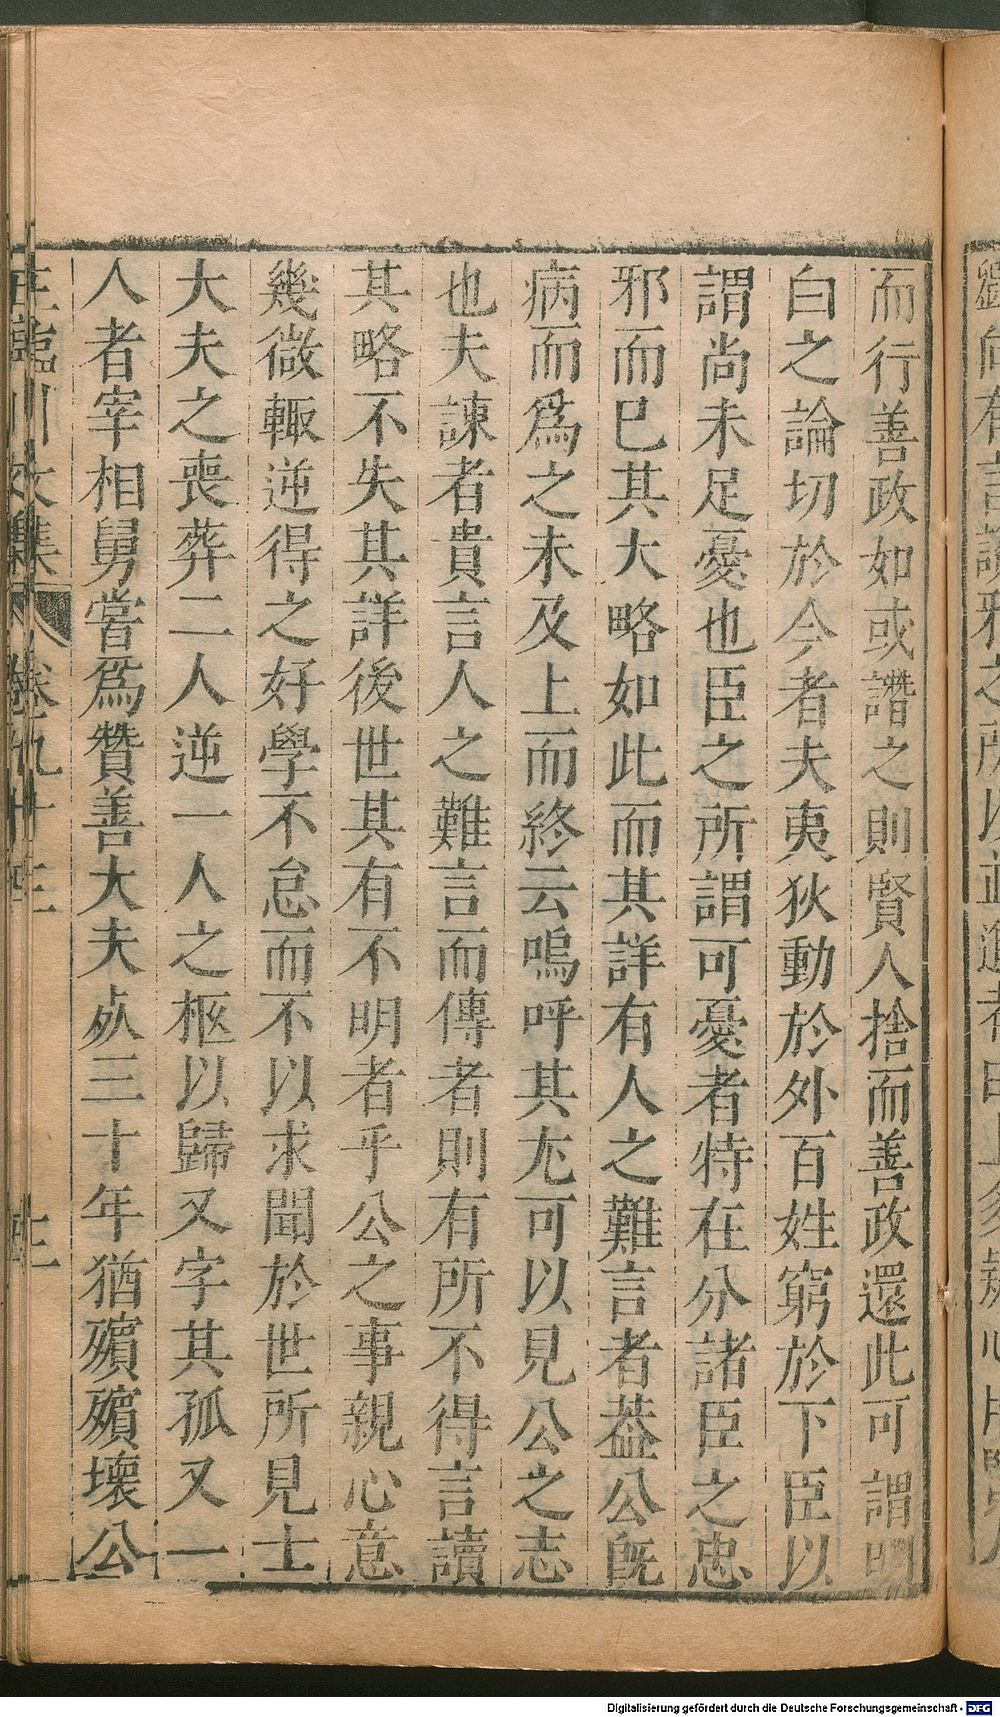 而行善政如或譖之則賢人捨而善政還此可謂明
白之論切於今者夫夷狄動於外百姓窮於下臣以
謂尚未足憂也臣之所謂可憂者特在分諸臣之忠
邪而已其大略如此而其詳有人之難言者葢公旣
病而爲之未及上而終云嗚呼其尤可以見公之志
也夫諫者貴言人之難言而傳者則有所不得言讀
其略不失其詳後世其有不明者乎公之事親心意
幾微輙逆得之好學不怠而不以求聞於世所見士
大夫之喪葬二人逆一人之柩以歸又字其孤又一
人者宰相舅嘗爲贊善大夫死三十年猶殯殯壞公
王臨川文集 卷九十三
Digitalisierung gefördert durch die Deutsche Forschungsgemeinschaft - DFG